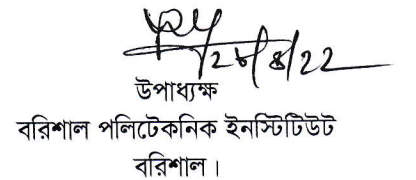 উপাধ্যক্ষ
বরিশাল পলিটেকনিক ইনস্টিটিউট
বরিশাল।